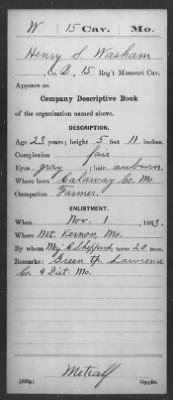 W 15 Cav. Mo.
Henry S. Washam
Co. B, 15 Reg't Missouri Cav.
Appears on
Company Descriptive Book
of the organization named above.
DESCRIPTION.
Age 23 years; height 5 feet 11 inches.
Complexion fair
Eyes gray; hair auburn.
Where born Calaway Co. Mo.
Occupation Farmer.
ENLISTMENT.
When Nov. 1, 1863.
Where Mt. Vernon, Mo.
By whom Maj. Sheppard, term 20 mos.
Remarks: Green Tp. Lawrence
Co. 4 Dist. Mo.
Metcalf
Copyist.